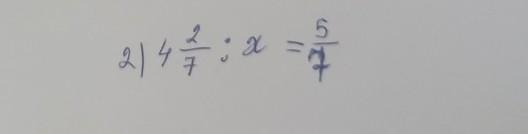 2) 4 2/7 : x = 5/7